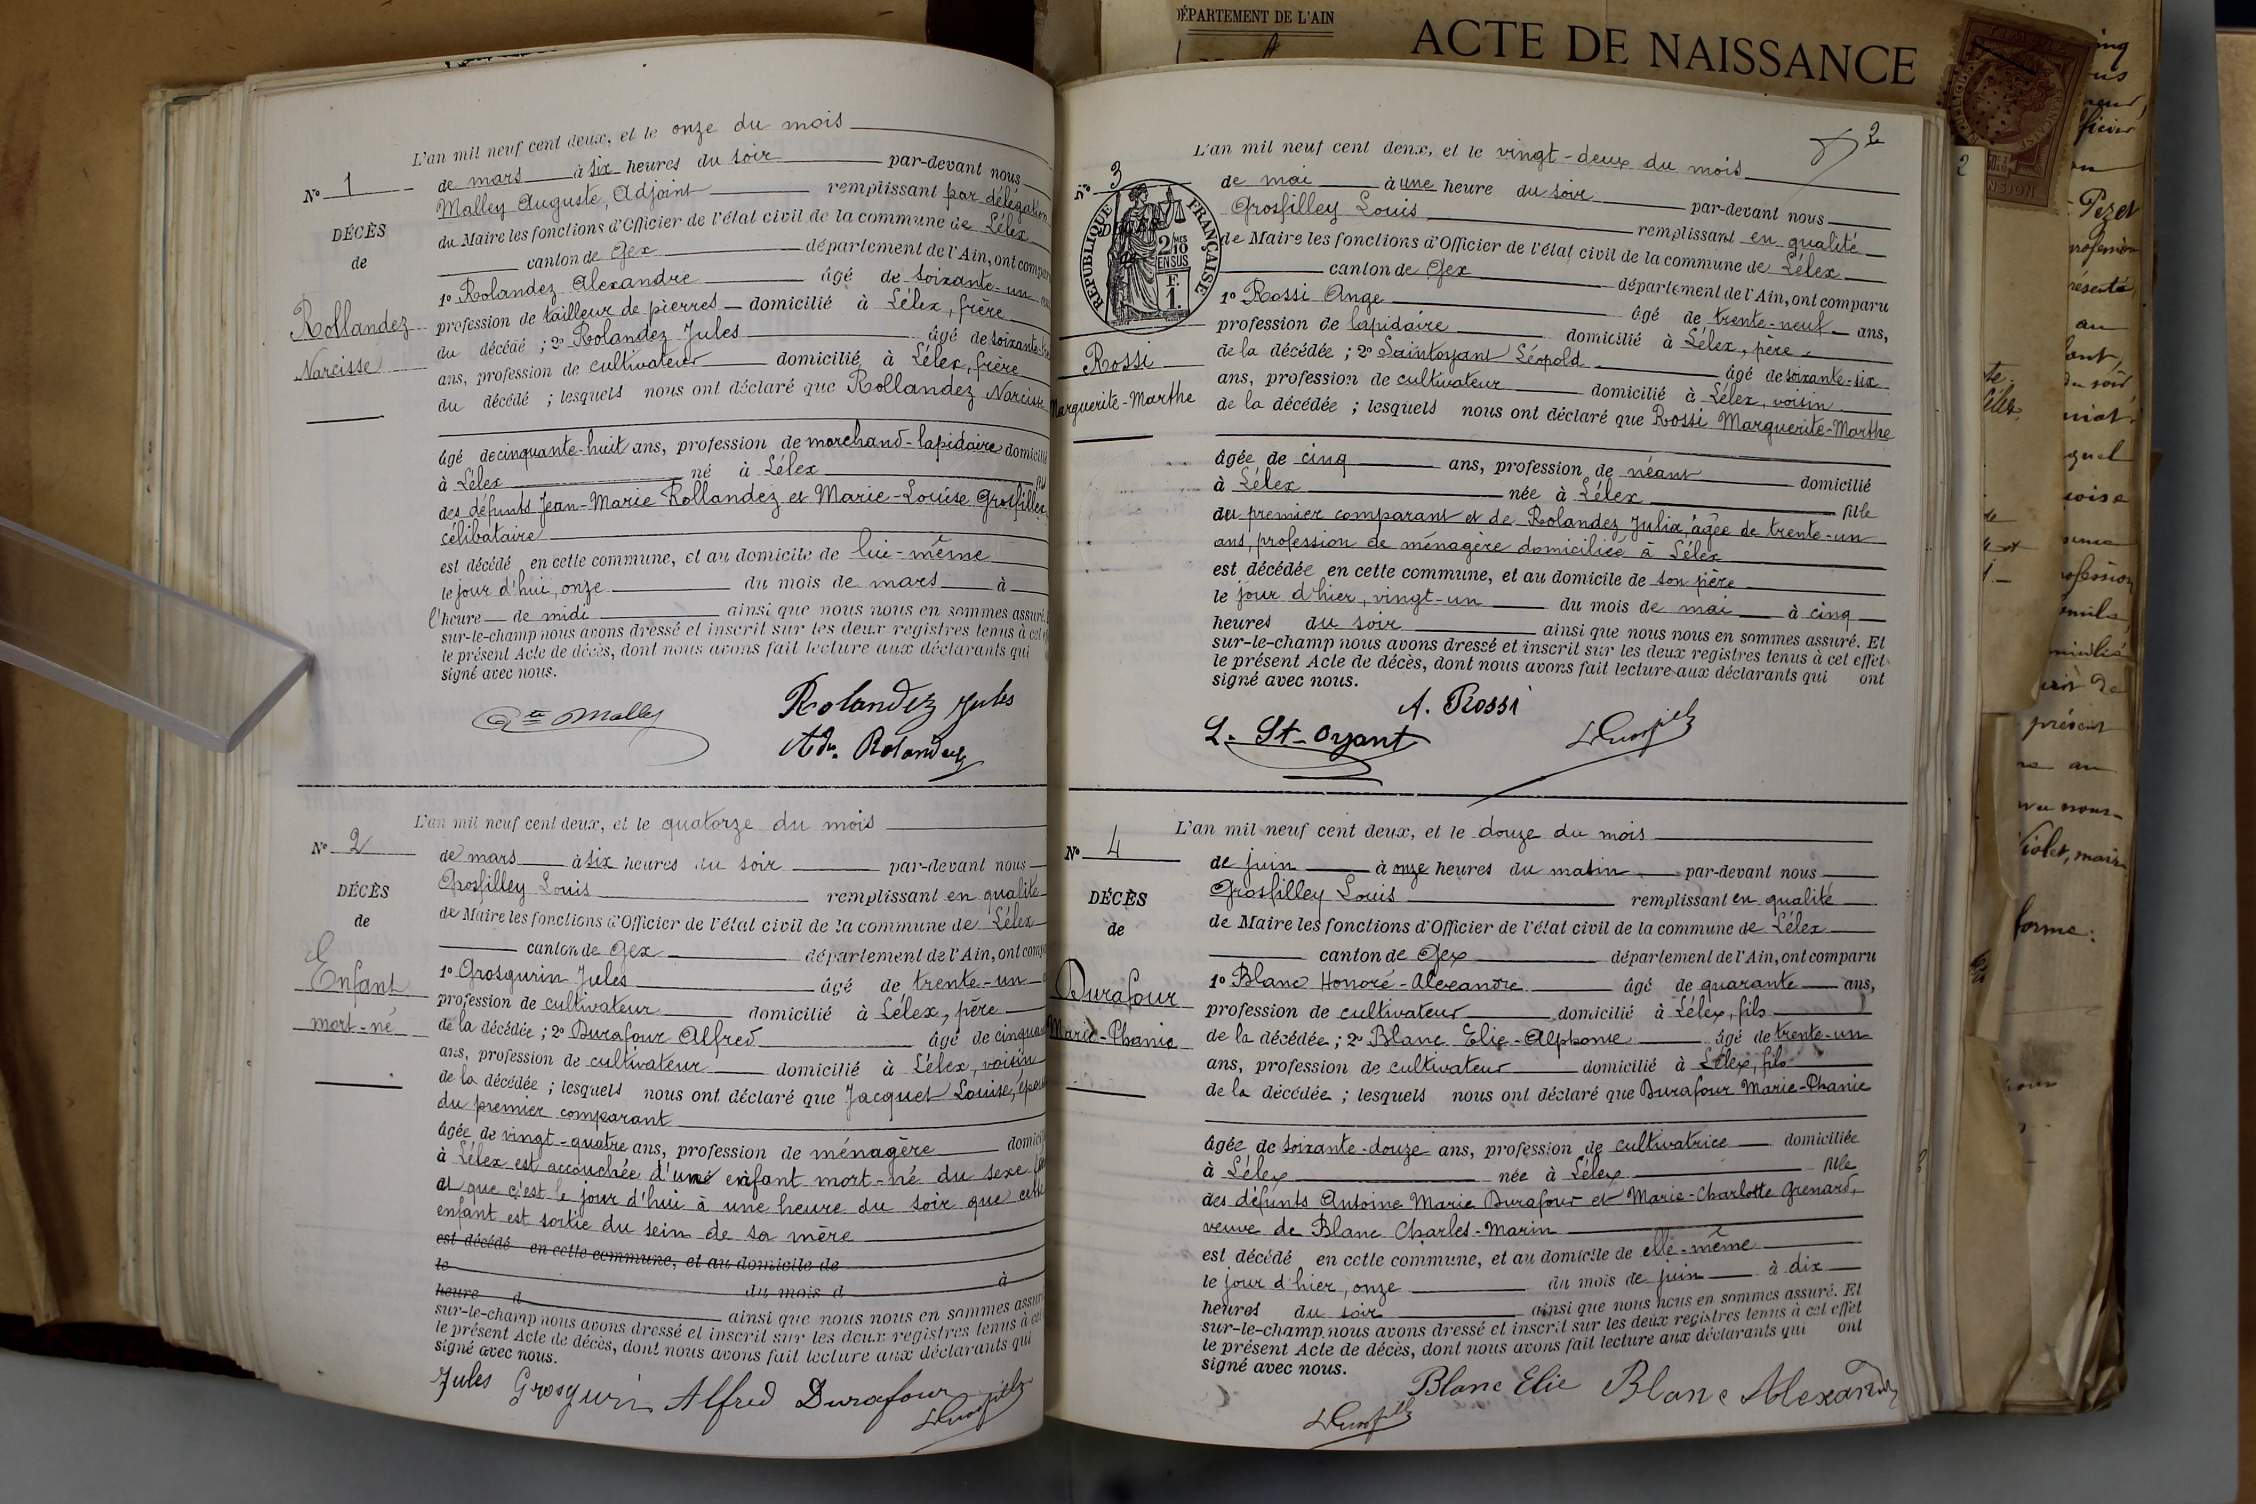 L'an mil neuf cent deux, et le onze du mois
de mars à six heures du soir par-devant nous
Malley Auguste, Adjoint remplissant par délégation
du Maire les fonctions d'Officier de l'état civil de la commune de Lélex
canton de Gex département de l'Ain, ont compar
1º Rolandez Alexandre âgé de soixante-un
profession de tailleur de pierres domicilié à Lélex, frère
du décédé ; 2º Rolandez Jules âgé de soixante
ans, profession de cultivateur domicilié à Lélex, frère
du décédé ; lesquels nous ont déclaré que Rollandez Narcisse
âgé de cinquante-huit ans, profession de marchand-lapidaire domicilié
à Lélex né à Lélex fils
des défunts Jean-Marie Rollandez et Marie-Louise Grosfilley
célibataire
est décédé en cette commune, et au domicile de lui-même
le jour d'hui, onze du mois de mars à
l'heure de midi ainsi que nous nous en sommes assuré.
sur-le-champ nous avons dressé et inscrit sur les deux registres tenus à cet
le présent Acte de décès, dont nous avons fait lecture aux déclarants qui
signé avec nous.
Nº 1
DÉCÈS
de
Rollandez
Narcisse
Malley
Rolandez Jules
Rolandez
L'an mil neuf cent deux, et le quatorze du mois
de mars à six heures du soir par-devant nous
Grosfilley Louis remplissant en qualité
de Maire les fonctions d'Officier de l'état civil de la commune de Lélex
canton de Gex département de l'Ain, ont comp
1º Grosgurin Jules âgé de trente-un
profession de cultivateur domicilié à Lélex, père
de la décédée ; 2º Durafour Alfred âgé de cinqua
ans, profession de cultivateur domicilié à Lélex, voisin
de la décédée ; lesquels nous ont déclaré que Jacquet Louise, épouse
du premier comparant
âgée de vingt-quatre ans, profession de ménagère domici
à Lélex est accouchée d'une enfant mort-né du sexe
et que c'est le jour d'hui à une heure du soir que cette
enfant est sortie du sein de sa mère
est décédé en cette commune, et au domicile de
le du mois d à
heure d ainsi que nous nous en sommes assuré
sur-le-champ nous avons dressé et inscrit sur les deux registres tenus à cet
le présent Acte de décès, dont nous avons fait lecture aux déclarants qui
signé avec nous.
Nº 2
DÉCÈS
de
Enfant
mort-né
Jules Grosgurin Alfred Durafour
DÉPARTEMENT DE L'AIN
ACTE DE NAISSANCE
2
L'an mil neuf cent deux, et le vingt-deux du mois
de mai à une heure du soir par-devant nous
Grosfilley Louis remplissant en qualité
de Maire les fonctions d'Officier de l'état civil de la commune de Lélex
canton de Gex département de l'Ain, ont comparu
1º Rossi Ange âgé de trente-neuf ans,
profession de lapidaire domicilié à Lélex, père
de la décédée ; 2º Saintoyant Léopold âgé de soixante-six
ans, profession de cultivateur domicilié à Lélex, voisin
de la décédée ; lesquels nous ont déclaré que Rossi Marguerite-Marthe
âgée de cinq ans, profession de néant domicilié
à Lélex née à Lélex fille
du premier comparant et de Rolandez Julia, âgée de trente-un
ans, profession de ménagère domiciliée à Lélex
est décédée en cette commune, et au domicile de son père
le jour d'hier, vingt-un du mois de mai à cinq
heures du soir ainsi que nous nous en sommes assuré. Et
sur-le-champ nous avons dressé et inscrit sur les deux registres tenus à cet effet
le présent Acte de décès, dont nous avons fait lecture aux déclarants qui ont
signé avec nous.
Nº 3
DÉCÈS
RÉPUBLIQUE FRANÇAISE
2/10
EN SUS
F.
1.
Rossi
Marguerite-Marthe
A. Rossi
L. St-Oyant
L'an mil neuf cent deux, et le douze du mois
de juin à onze heures du matin par-devant nous
Grosfilley Louis remplissant en qualité
de Maire les fonctions d'Officier de l'état civil de la commune de Lélex
canton de Gex département de l'Ain, ont comparu
1º Blanc Honoré-Alexandre âgé de quarante ans,
profession de cultivateur domicilié à Lélex, fils
de la décédée ; 2º Blanc Elie-Alphonse âgé de trente-un
ans, profession de cultivateur domicilié à Lélex, fils
de la décédée ; lesquels nous ont déclaré que Durafour Marie-Phanie
âgée de soixante-douze ans, profession de cultivatrice domiciliée
à Lélex née à Lélex fille
des défunts Antoine Marie Durafour et Marie-Charlotte Grenard,
veuve de Blanc Charles-Marin
est décédé en cette commune, et au domicile de elle-même
le jour d'hier, onze du mois de juin à dix
heures du soir ainsi que nous nous en sommes assuré. Et
sur-le-champ nous avons dressé et inscrit sur les deux registres tenus à cet effet
le présent Acte de décès, dont nous avons fait lecture aux déclarants qui ont
signé avec nous.
Nº 4
DÉCÈS
de
Durafour
Marie-Phanie
Blanc Elie Blanc Alexandre